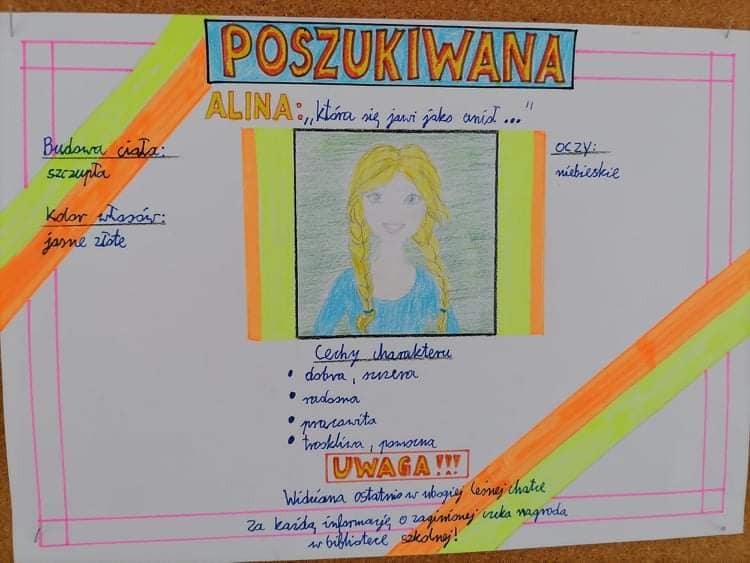 POSZUKIWANA
ALINA: „która się jawi jako anioł..."
Budowa ciała:
szczupła
Kolor włosów:
jasne złote
oczy:
niebieskie
Cechy charakteru
• dobra, szczera
• radosna
• pracowita
• troskliwa, pomocna
UWAGA!!!
Widziana ostatnio w ubogiej leśnej chatce
Za każdą informację o zaginionej czeka nagroda
w bibliotece szkolnej!